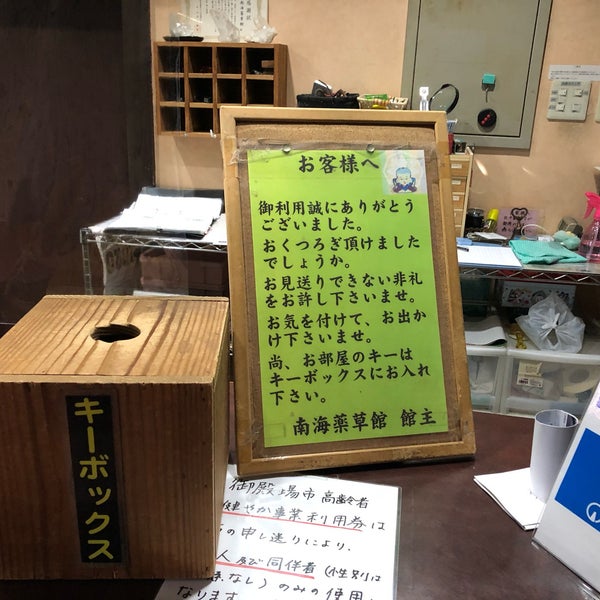 お客様へ
御利用誠にありがとう
ございました。
おくつろぎ頂けました
でしょうか。
お見送りできない非礼
をお許し下さいませ。
お気を付けて、お出か
け下さいませ。
尚、お部屋のキーは
キーボックスにお入れ
下さい。
南海薬草館 館主
キーボックス
御殿場市高齢者
健やか事業利用券は
の申し送りにより、
人及び同伴者(性別は
なし)のみの使用
なります